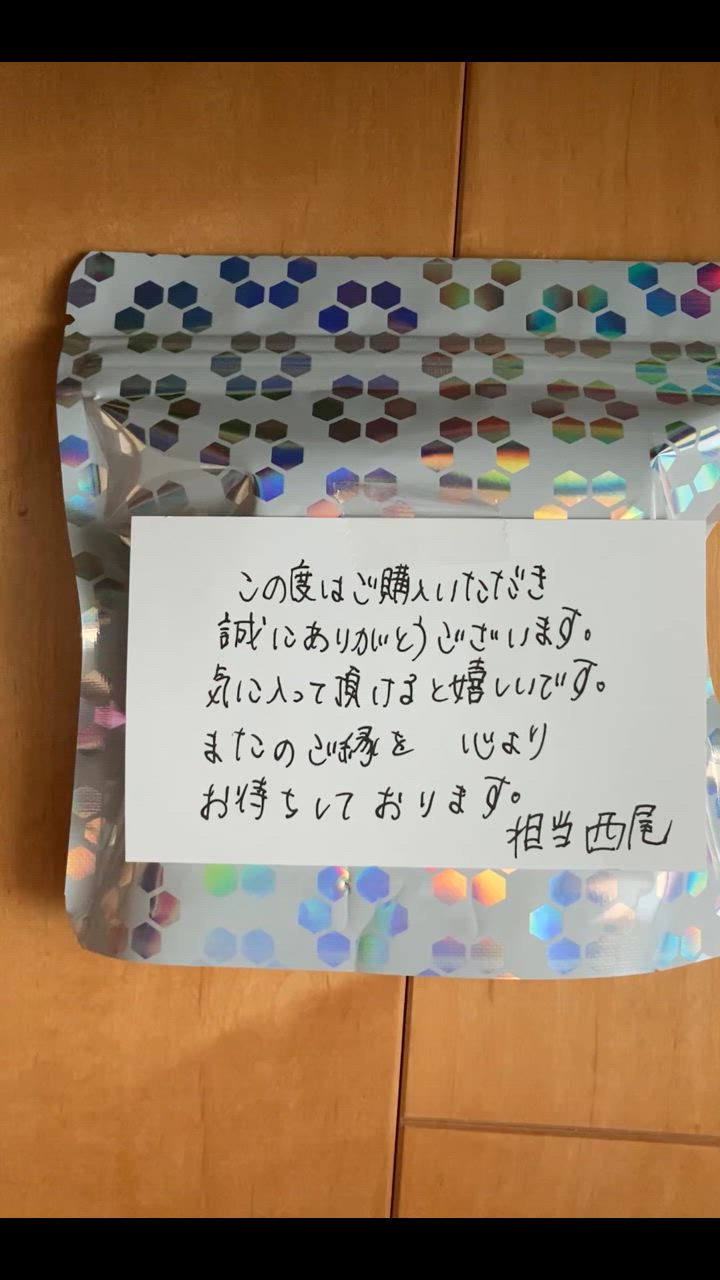 この度はご購入いただき
誠にありがとうございます。
気に入って頂けると嬉しいです。
またのご縁を 心より
お待ちしております。
担当 西尾